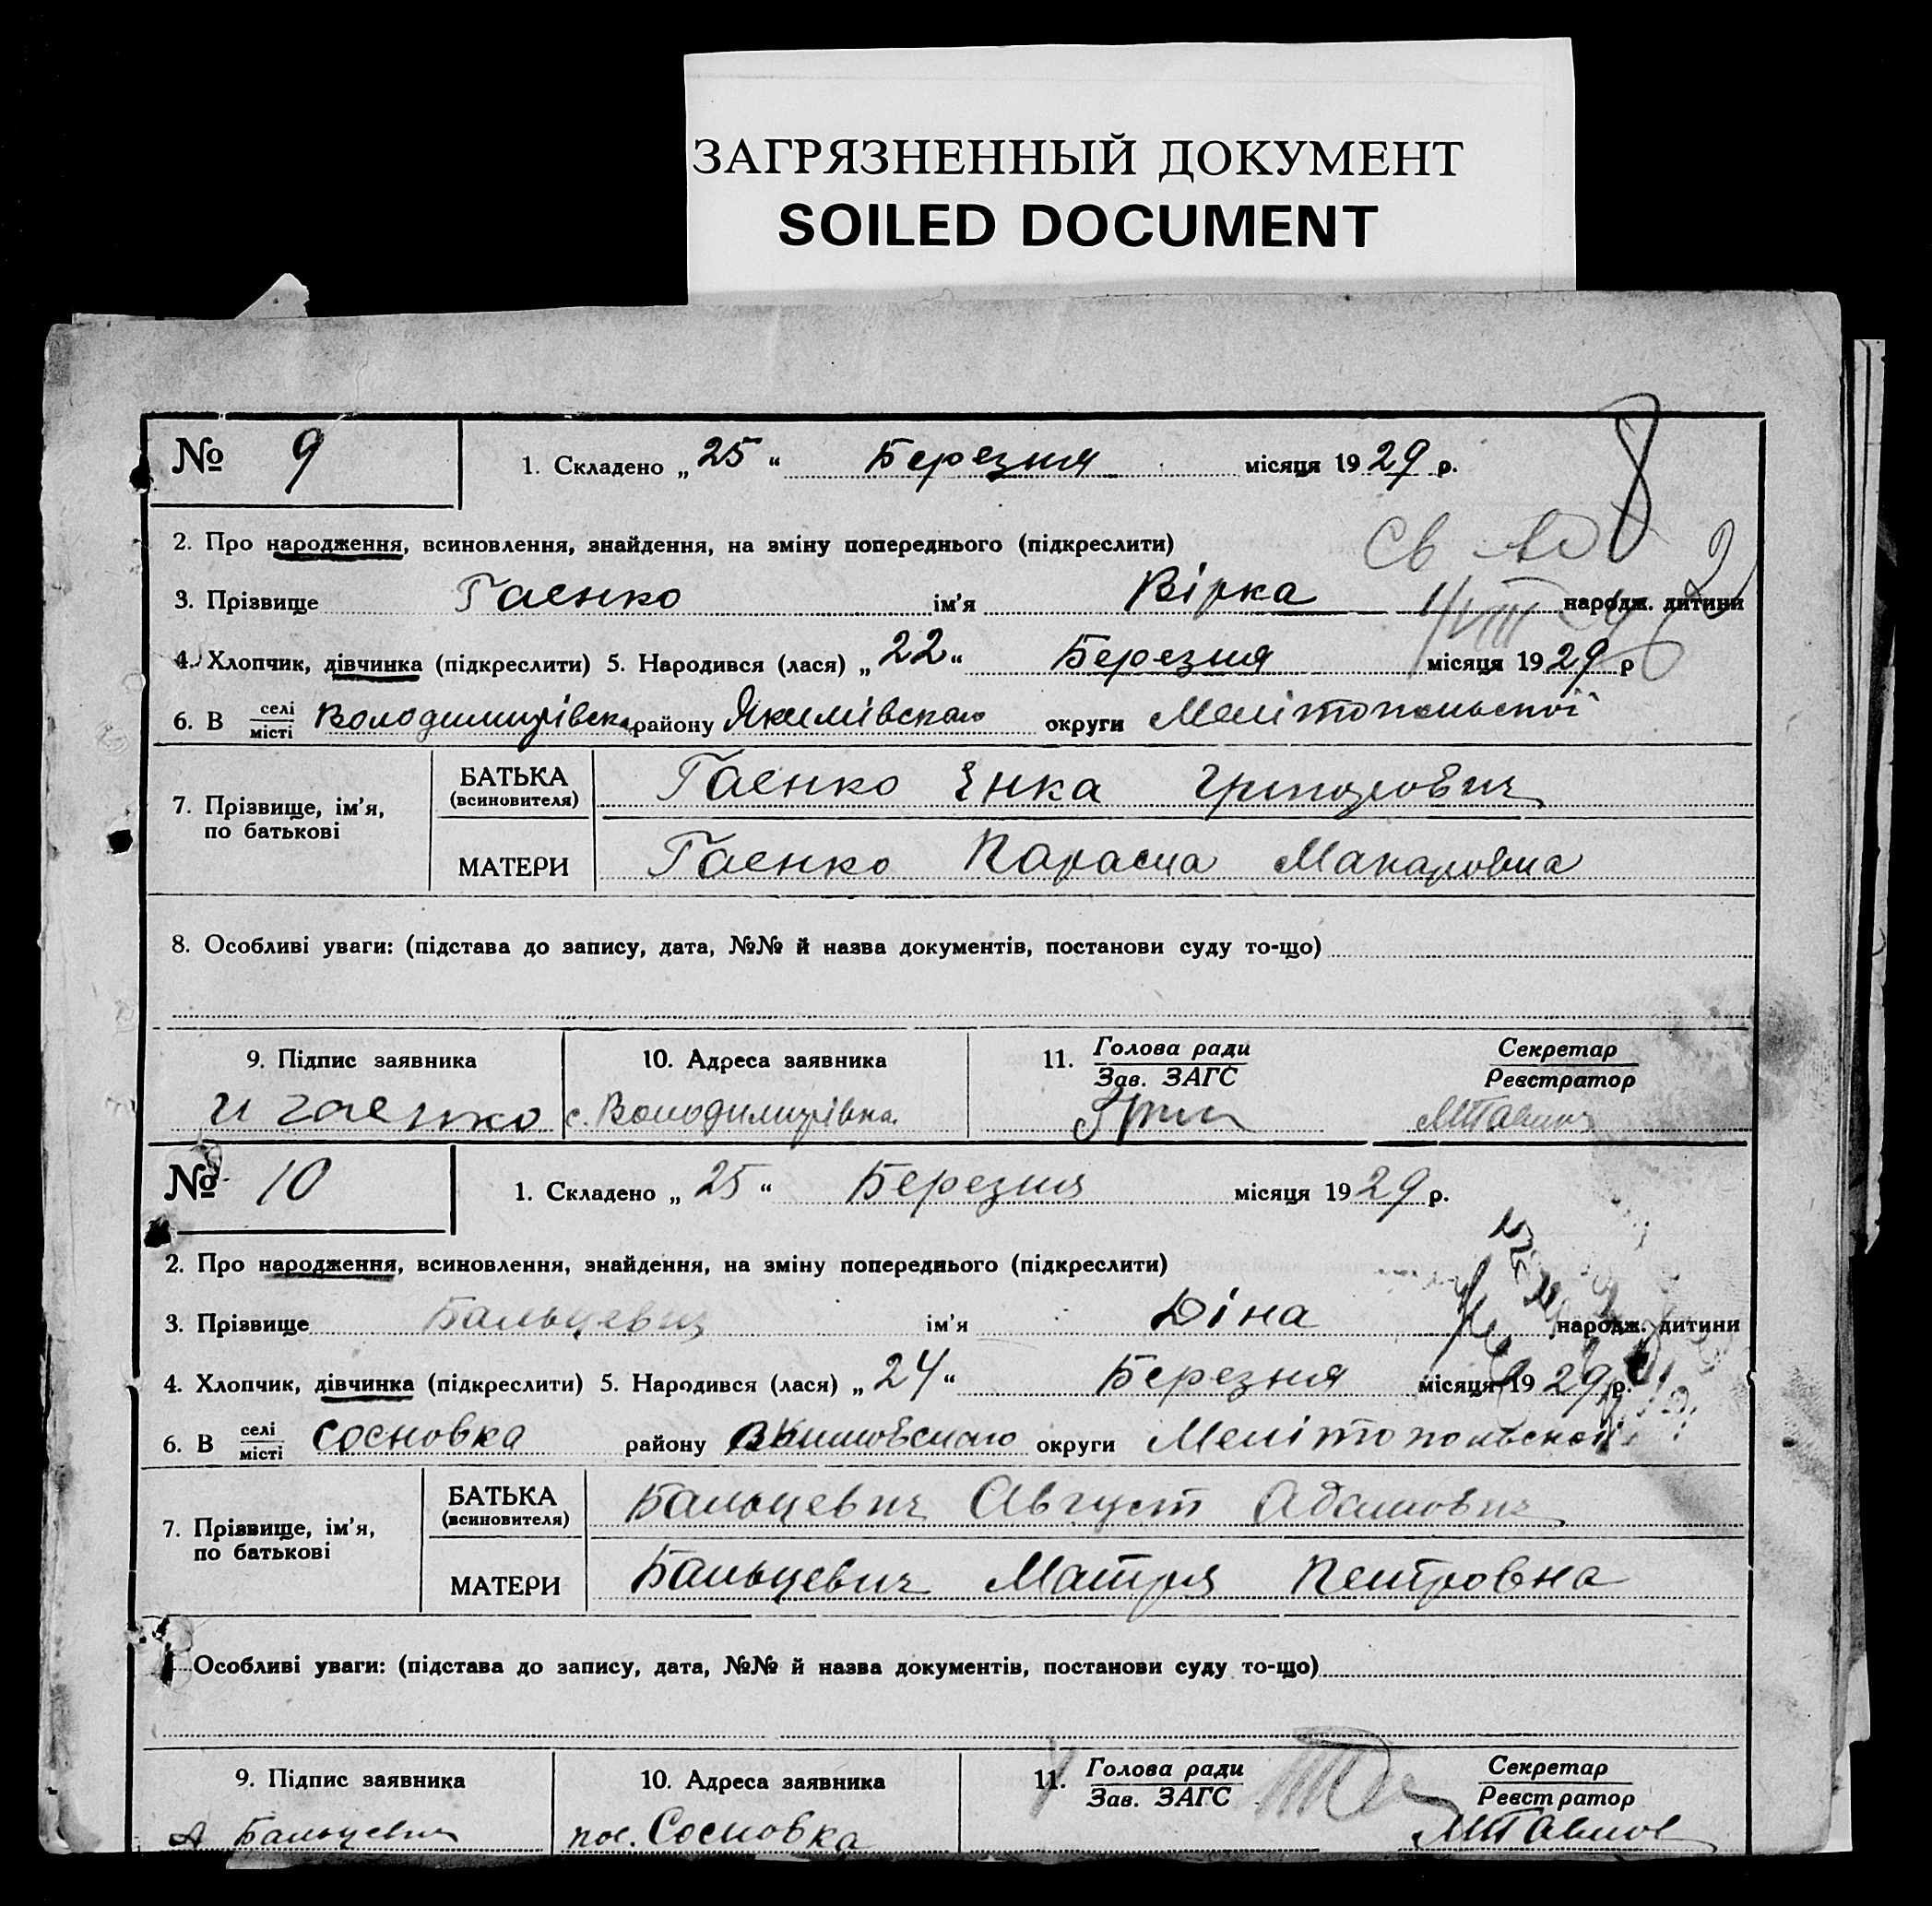 ЗАГРЯЗНЕННЫЙ ДОКУМЕНТ
SOILED DOCUMENT
8
№ 9 1. Складено „ 25 “ Березня місяця 1929 р.
2. Про народження, всиновлення, знайдення, на зміну попереднього (підкреслити)
3. Прізвище Гаенко ім’я Вірка народж. дитини
4. Хлопчик, дівчинка (підкреслити) 5. Народився (лася) „ 22 “ Березня місяця 1929 р
6. В селі місті Володимирівка району Якимівского округи Мелітопольської
7. Прізвище, ім’я, по батькові
БАТЬКА (всиновителя) Гаенко Григорович
МАТЕРИ Гаенко Параска Макаровна
8. Особливі уваги: (підстава до запису, дата, №№ й назва документів, постанови суду то-що)
9. Підпис заявника 10. Адреса заявника 11. Голова ради Зав. ЗАГС Секретар Реєстратор
и гаенко с. Володимирівка
№ 10 1. Складено „ 25 “ Березня місяця 1929 р.
2. Про народження, всиновлення, знайдення, на зміну попереднього (підкреслити)
3. Прізвище Бальцевич ім’я Діна народж. дитини
4. Хлопчик, дівчинка (підкреслити) 5. Народився (лася) „ 24 “ Березня місяця 1929 р.
6. В селі місті Сосновка району округи Мелітопольскої
7. Прізвище, ім’я, по батькові
БАТЬКА (всиновителя) Бальцевич Август Адамович
МАТЕРИ Бальцевич Матря Петровна
Особливі уваги: (підстава до запису, дата, №№ й назва документів, постанови суду то-що)
9. Підпис заявника 10. Адреса заявника 11. Голова ради Зав. ЗАГС Секретар Реєстратор
А Бальцевич пос. Сосновка